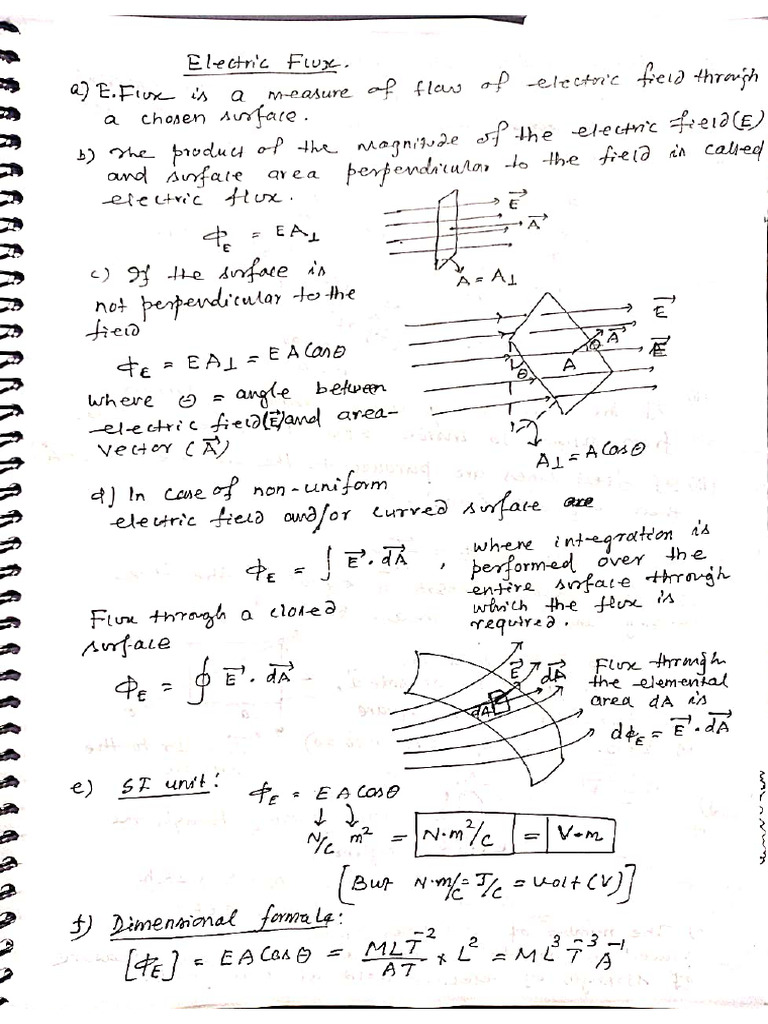 Electric Flux.
a) E.Flux is a measure of flow of electric field through
a chosen surface.
b) The product of the magnitude of the electric field(E)
and surface area perpendicular to the field is called
electric flux.
ϕ_E = EA⊥
E⃗
A⃗
A = A⊥
c) If the surface is
not perpendicular to the
field
ϕ_E = EA⊥ = EACosθ
where θ = angle between
electric field(E⃗) and area-
vector (A⃗)
E⃗
θ A⃗
E⃗
θ A
A⊥ = ACosθ
d) In case of non-uniform
electric field and/or curved surface are
ϕ_E = ∫ E⃗ . dA⃗ ,
where integration is
performed over the
entire surface through
which the flux is
required.
Flux through a closed
surface
ϕ_E = ∮ E⃗ . dA⃗
E⃗ dA⃗
dA
Flux through
the elemental
area dA is
dϕ_E = E⃗ . dA⃗
e) SI unit: ϕ_E = EACosθ
↓ ↓
N/C m² = N·m²/C = V-m
[But N·m/C = J/C = Volt (V)]
f) Dimensional formula:
[ϕ_E] = EACosθ = MLT⁻²/AT × L² = ML³T⁻³A⁻¹